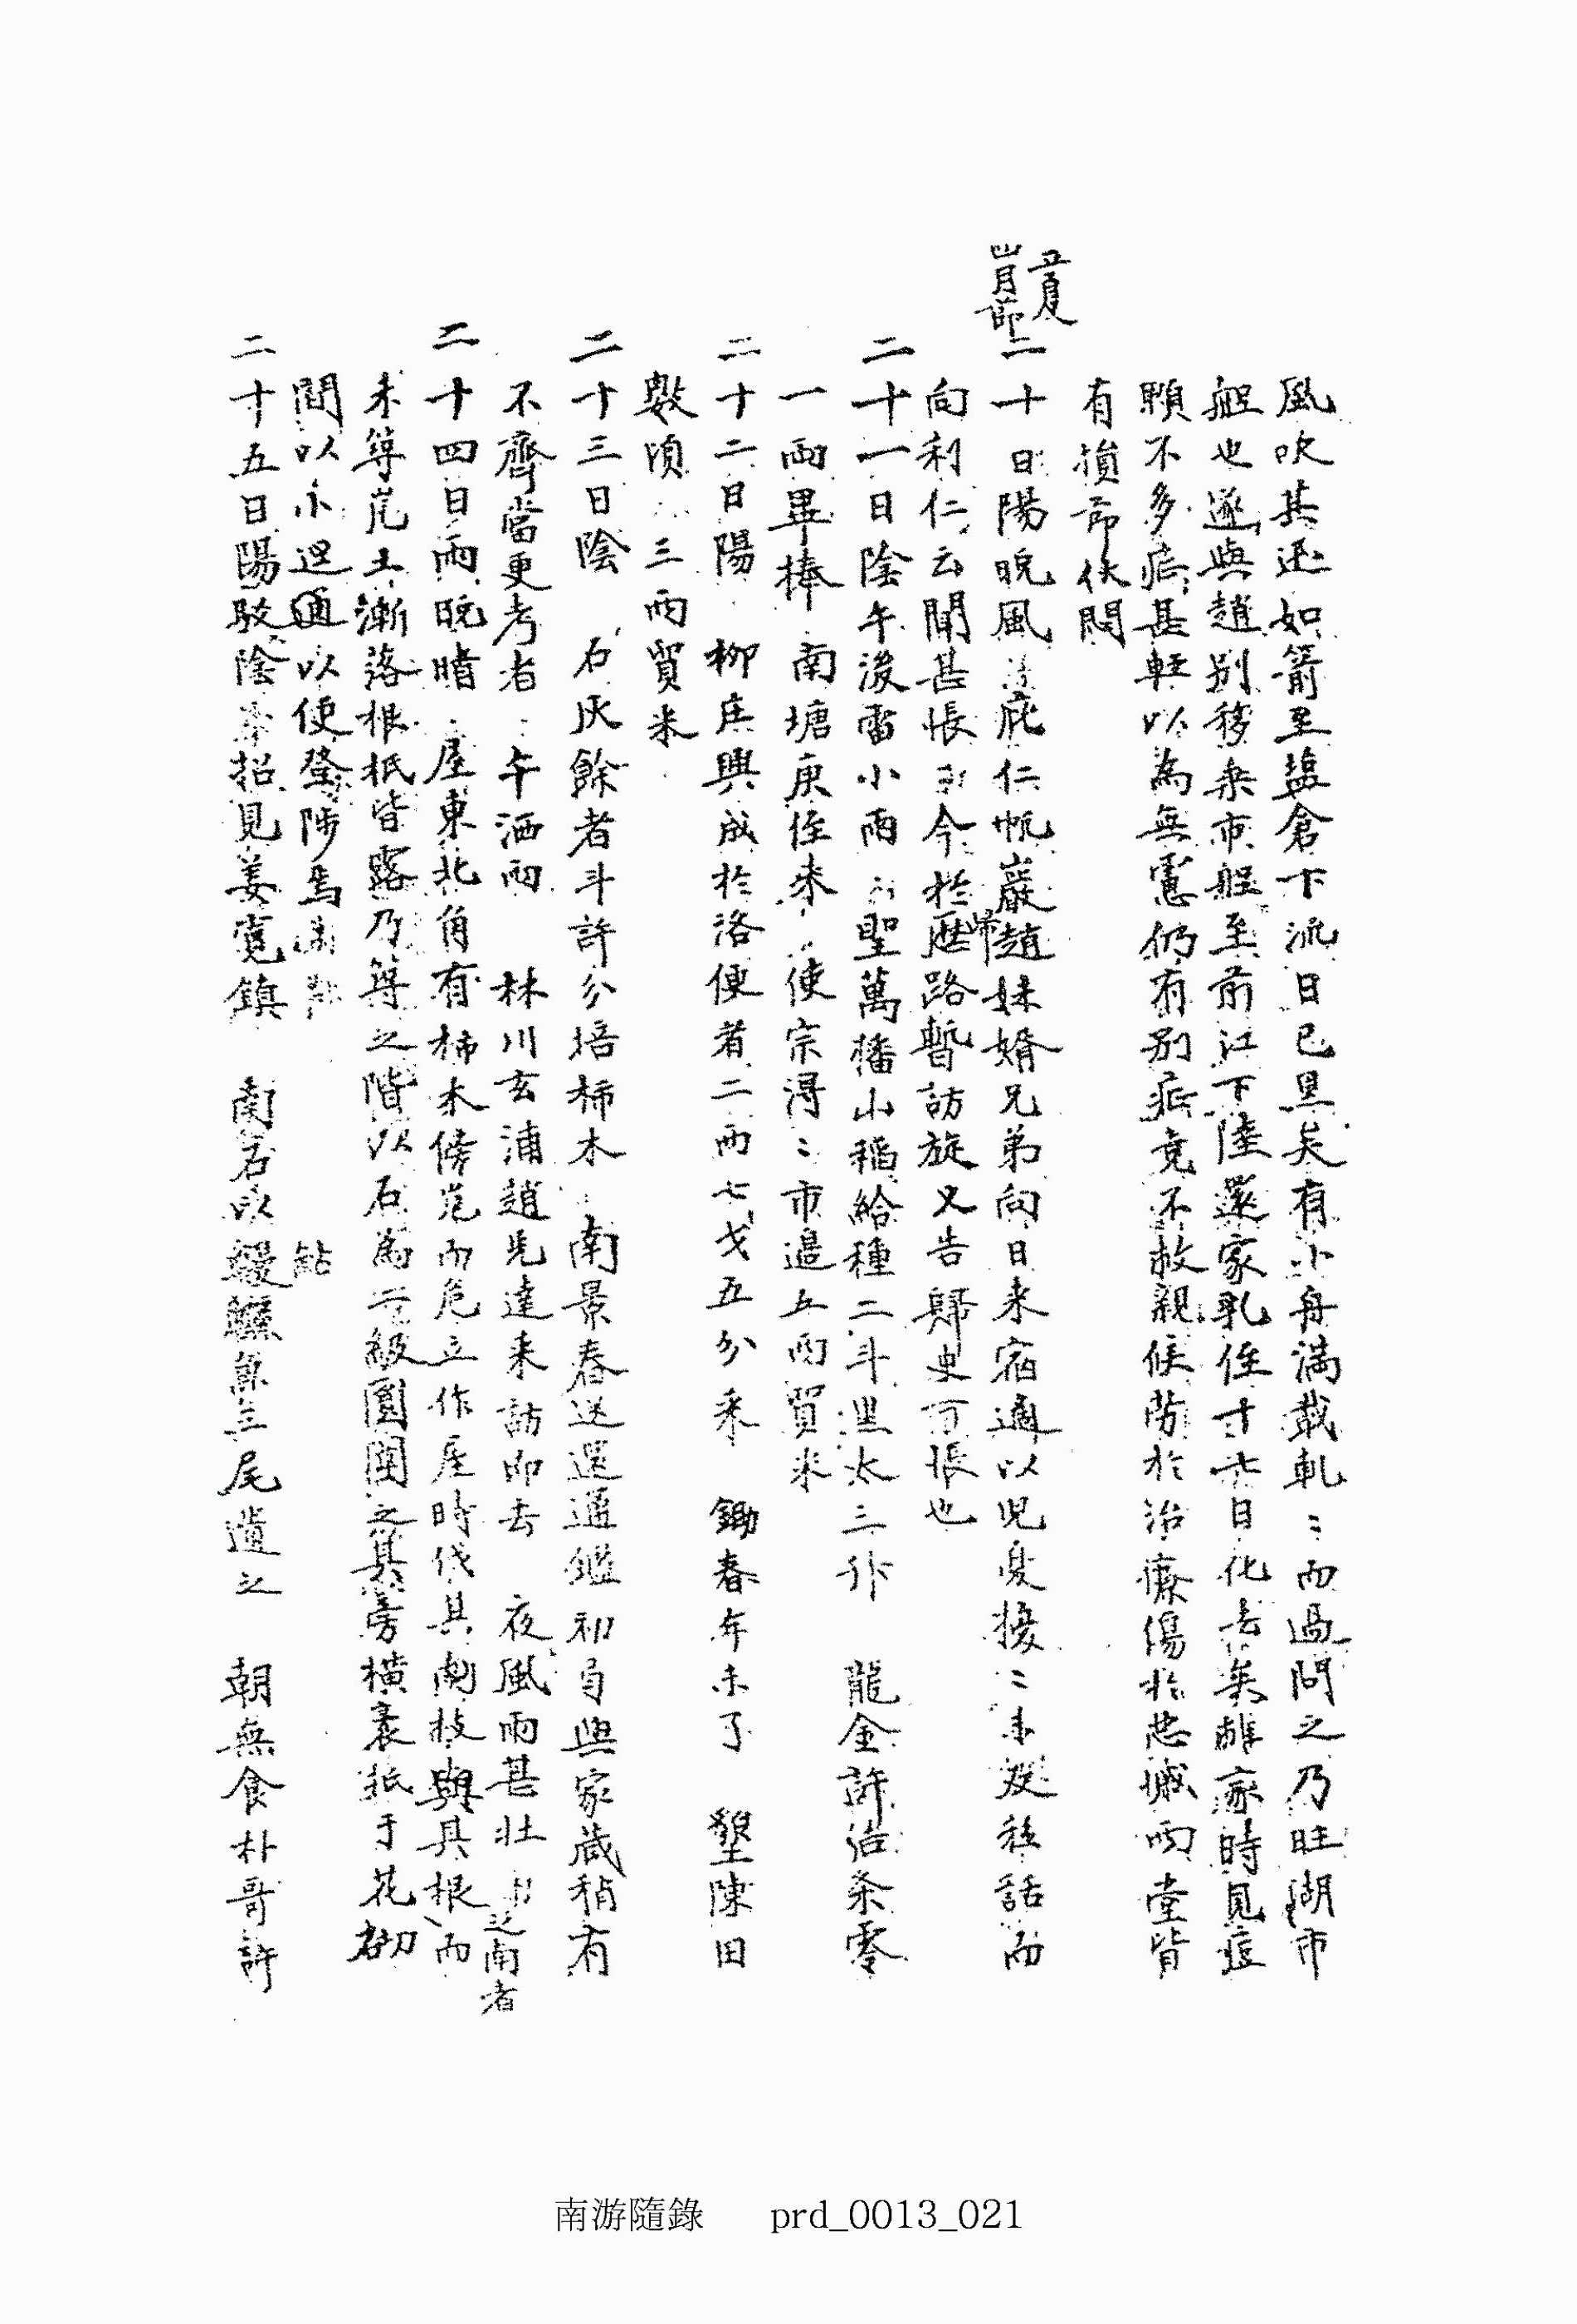 風吹其還如箭至塩倉下流日已黑矣有小舟滿載軋〻而過問之乃旺湖市
舡也遂與趙別移乘市舡至前江下陸還家乳侄十六日化去矣離家時見痘
顆不多症甚輕以為無慮仍有別症竟不救親候苗於治療傷於悲慽兩堂皆
有損節伏悶
夏
首節
二十日陽晚風 庇仁帆巖趙妹婿兄弟向日来宿適以児憂擾〻未及穩話而
歸
向利仁云聞甚悵 今於歷路暫訪旋又告歸史可悵也
二十一日陰午後雷小雨 聖萬播山稻給種二斗黑太三升 龍金許治条零
一兩畢捧 南塘庚侄来 使宗得〻市邊五兩貿米
二十二日陽 柳庄興成於洛便者二兩七戈五分来 鋤春牟未了 墾陳田
數頃 三兩貿米
二十三日陰 石灰餘者斗許分培柿木 南景春送還通鑑初匀與家藏稍有
不齊當更考者 午洒雨 林川玄浦趙先達来訪即去 夜風雨甚壮
之南者
二十四日雨晚晴 屋東北角有柿木傍崖而危立作屋時伐其南枝與其根而
未等崖土漸落根柢皆露乃等之階以石為二級圓圍之其旁橫袤抵于花砌
間以小逕通以便登陟焉
二十五日陽駁陰 招見姜寬鎮 南石以鰻鱺魚三尾遺之 朝無食朴哥許
鮎
南游隨錄 prd_0013_021